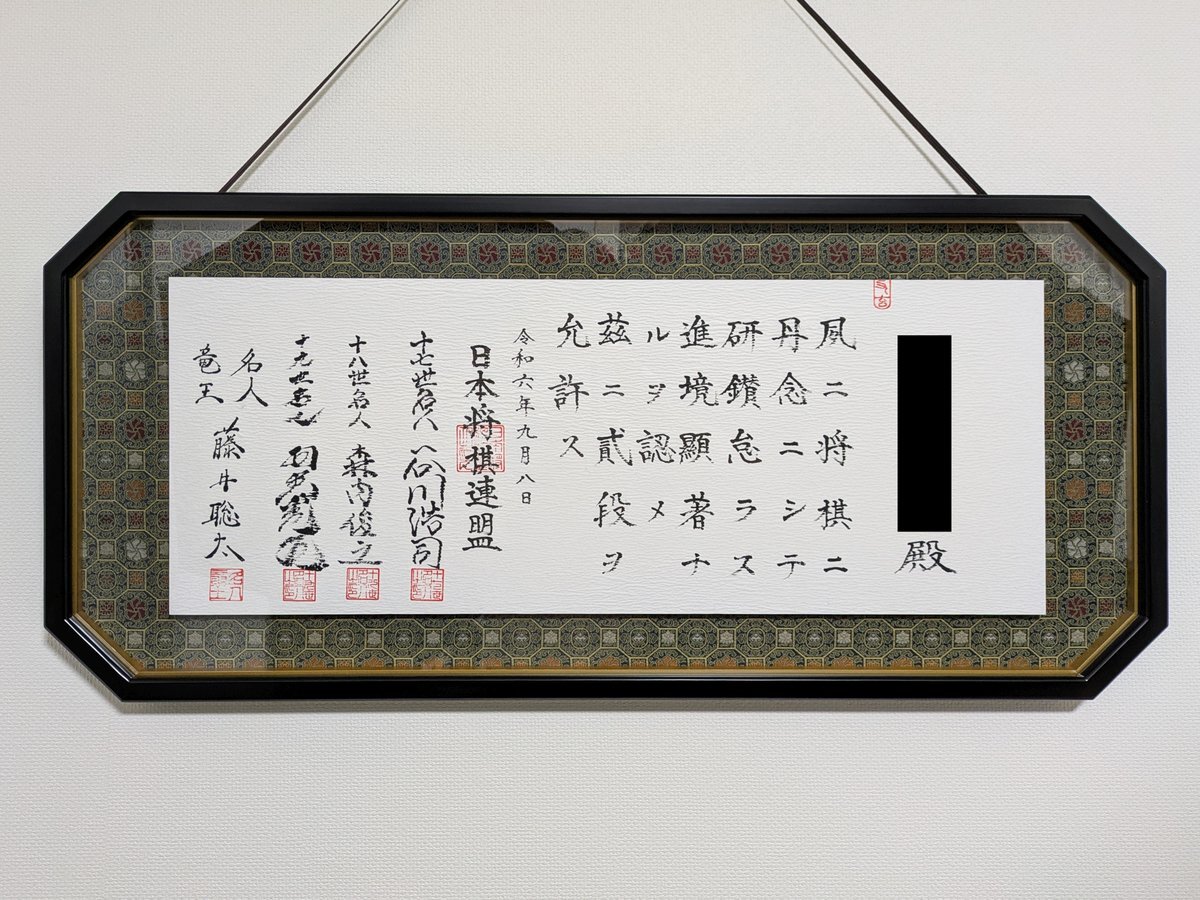 殿
夙ニ将棋ニ
丹念ニシテ
研鑚怠ラス
進境顯著ナ
ルヲ認メ
茲ニ貳段ヲ
允許ス
令和六年九月八日
日本将棋連盟
十七世名人 谷川浩司
十八世名人 森内俊之
十九世名人 羽生善治
名人
竜王 藤井聡太